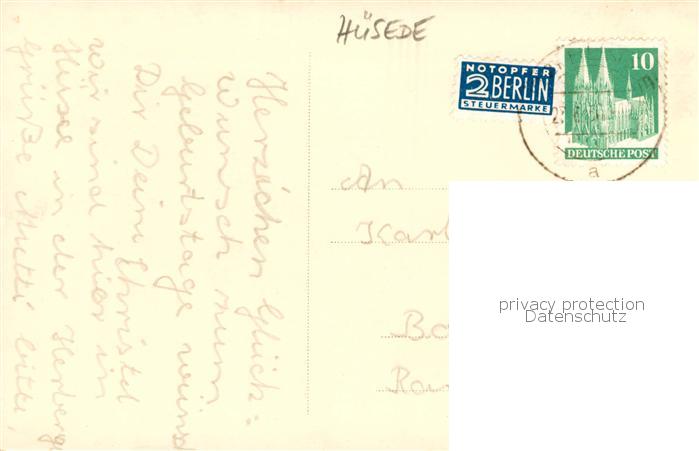 HÜSEDE
NOTOPFER
2 BERLIN
STEUERMARKE
10
DEUTSCHE POST
a
Herzlichen Glück-
wunsch zum
Geburtstage wünscht
Dir Dein Christel
wir sind hier in
Hüsede in der Herberge
Grüße Mutti bitte,
An
Karl
Ba
Ra
privacy protection
Datenschutz